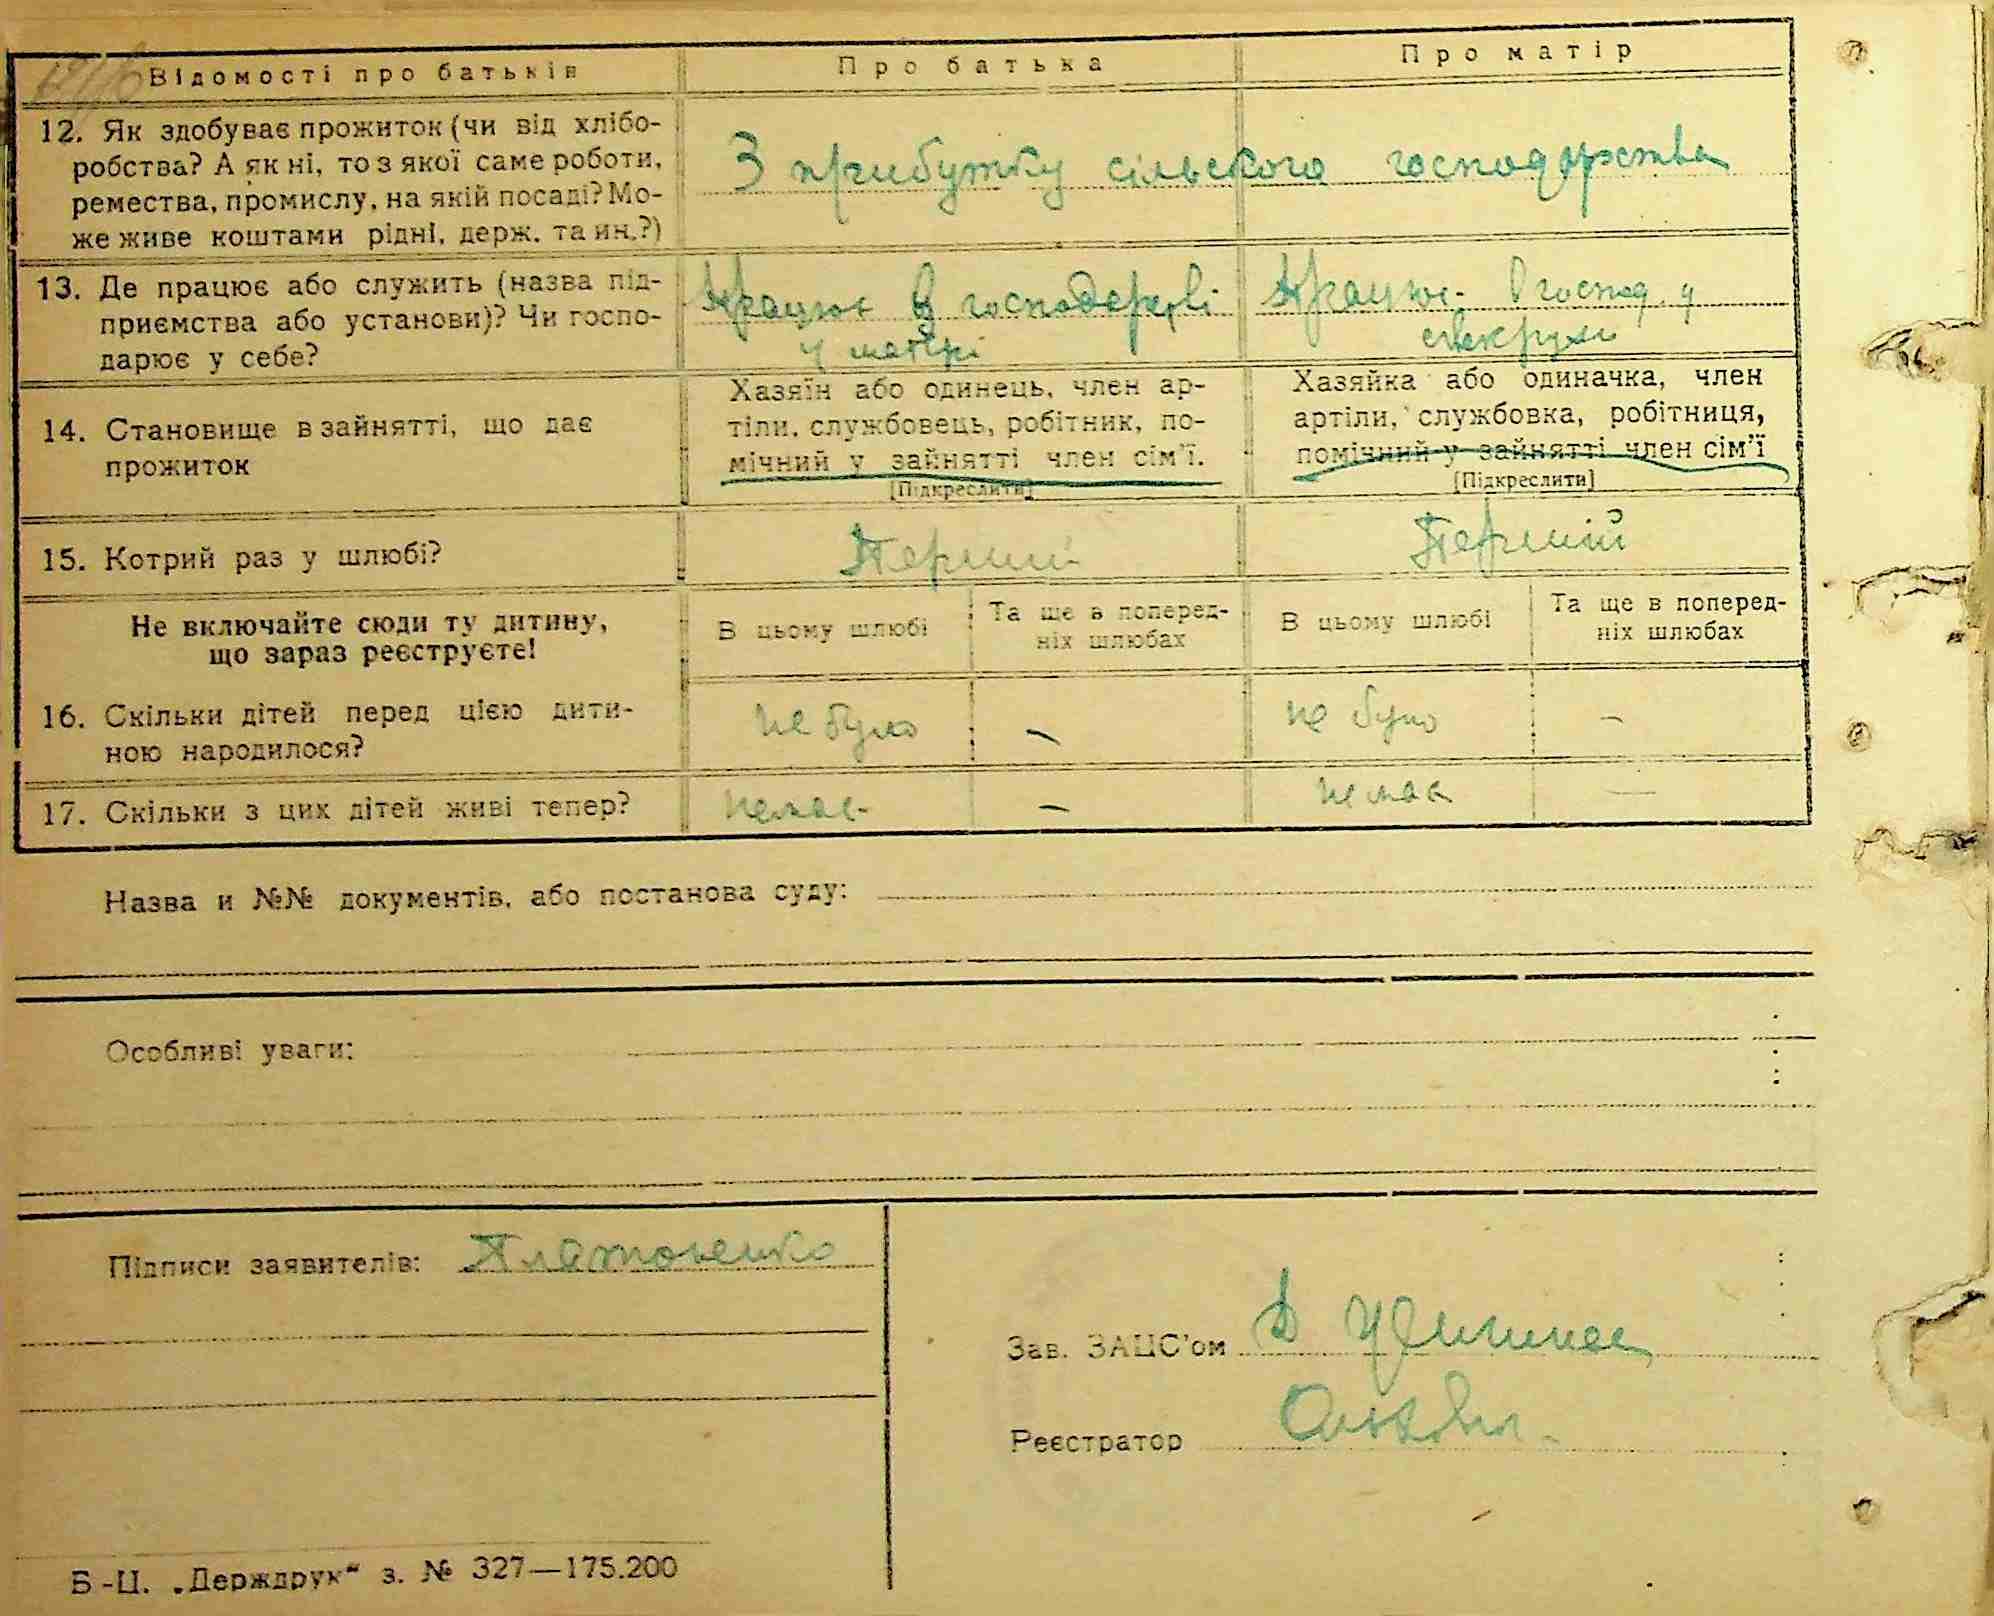 Відомості про батьків
Про батька
Про матір
12. Як здобуває прожиток (чи від хлібо-
робства? А як ні, то з якої саме роботи,
ремества, промислу, на якій посаді? Мо-
же живе коштами рідні, держ. та ин.?)
З прибутку сільского господарства
13. Де працює або служить (назва під-
приємства або установи)? Чи госпо-
дарює у себе?
Працює в господарстві
у матері
Працює в господ. у
свекрухи
14. Становище в зайнятті, що дає
прожиток
Хазяїн або одинець, член ар-
тіли, службовець, робітник, по-
мічний у зайнятті член сім'ї.
[Підкреслити]
Хазяйка або одиначка, член
артіли, службовка, робітниця,
помічний у зайнятті член сім'ї
[Підкреслити]
15. Котрий раз у шлюбі?
Перший
Перший
Не включайте сюди ту дитину,
що зараз реєструєте!
В цьому шлюбі
Та ще в поперед-
ніх шлюбах
В цьому шлюбі
Та ще в поперед-
ніх шлюбах
16. Скільки дітей перед цією дити-
ною народилося?
не було
—
не було
—
17. Скільки з цих дітей живі тепер?
немає
—
немає
—
Назва и №№ документів, або постанова суду:
Особливі уваги:
Підписи заявителів: Платоненко
Зав. ЗАЦС'ом
Реєстратор
Б-Ц. „Держдрук“ з. № 327—175.200